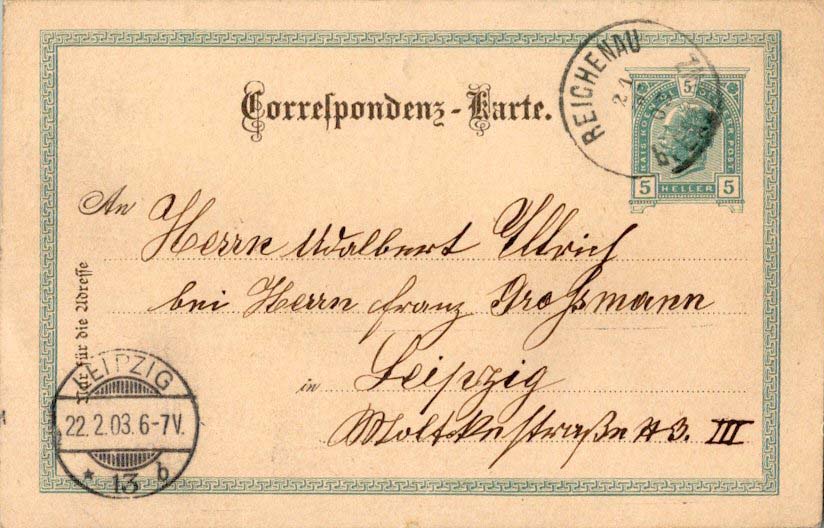 Correspondenz-Karte.
REICHENAU
5
KAIS. KOEN. OE
5 HELLER 5
An Herrn Adalbert Ullrich
bei Herrn Franz Großmann
Nur für die Adresse
in Leipzig
Moltkestraße 43. III
LEIPZIG
22.2.03.6-7V.
* 13 b